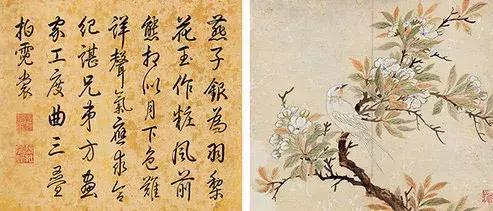 燕子銀為羽梨
花玉作粧風前
態相似月下色難
詳聲氣應求合
紀諶兄弟方畫
家工度曲三疊
拍霓裳